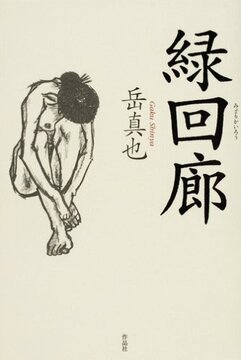 緑回廊
みどりかいろう
岳真也
Gaku Shinya
作品社